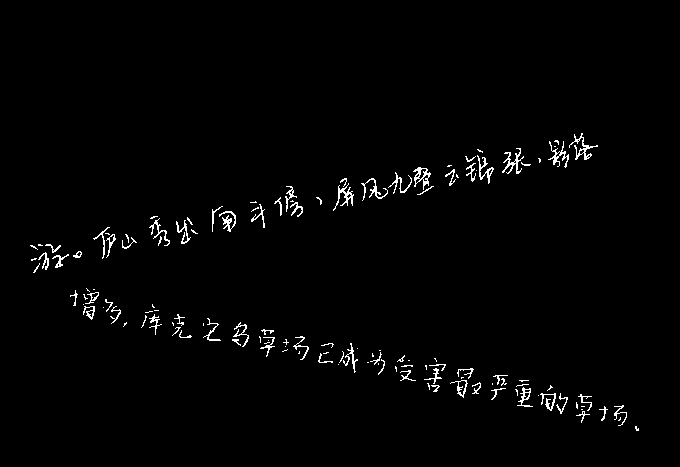 游。庐山秀出南斗傍，屏风九叠云锦张，影落
增多，库克它乌草场已成为受害最严重的草场。